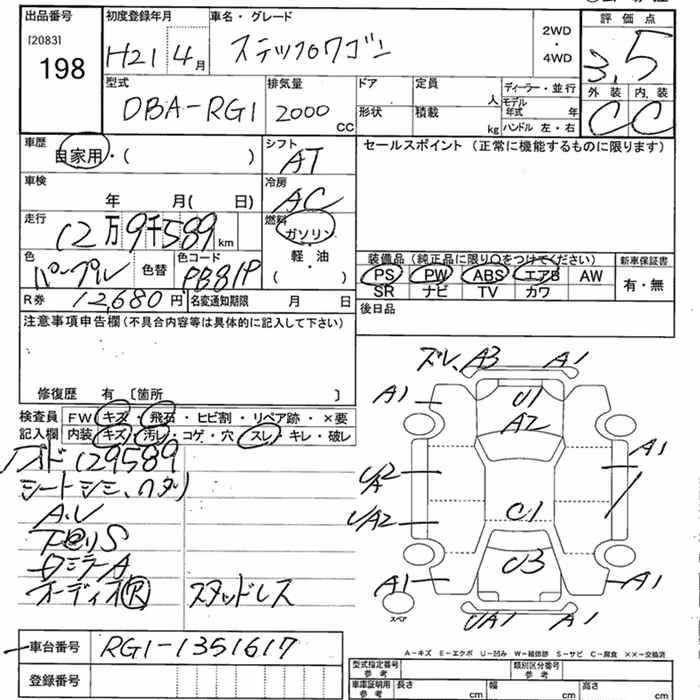 出品番号 初度登録年月 車名・グレード 評価点
[2083] 198
H21 4月 ステップワゴン
2WD・4WD
3.5
外装 内装
C C
型式 排気量 ドア 定員 ディーラー・並行
DBA-RG1 2000 CC 形状 積載 人 kg モデル年式 年
ハンドル 左・右
車歴 シフト セールスポイント (正常に機能するものに限ります)
自家用・( ) AT
車検 冷房
年 月(日) AC
走行 燃料
12万9千589km ガソリン
色 色替 色コード 軽・油
パープル PB81P ( )
装備品(純正品に限り○をつけてください) 新車保証書
PS PW ABS エアB AW 有・無
SR ナビ TV カワ
R券 12,680円 名変通知期限 月 日
後日品
注意事項申告欄(不具合内容等は具体的に記入して下さい)
修復歴 有 [箇所 ]
検査員 FW キズ・飛石・ヒビ割・リペア跡・×要
記入欄 内装 キズ・汚レ・コゲ・穴・スレ・キレ・破レ
129589
シート シミ、
A.V
オーディオR スタッドレス
ズレ、A3 A1
A1 U1
A2
UA2 A1
UA2 C1
U3
A1 A1
UA1 A1
スペア
A-キズ E-エクボ U-凹み W-補修跡 S-サビ C-腐食 ××-交換済
車台番号 RG1-1351617
登録番号
型式指定番号 参考 類別区分番号 参考
車庫証明用 参考 長さ cm 幅 cm 高さ cm